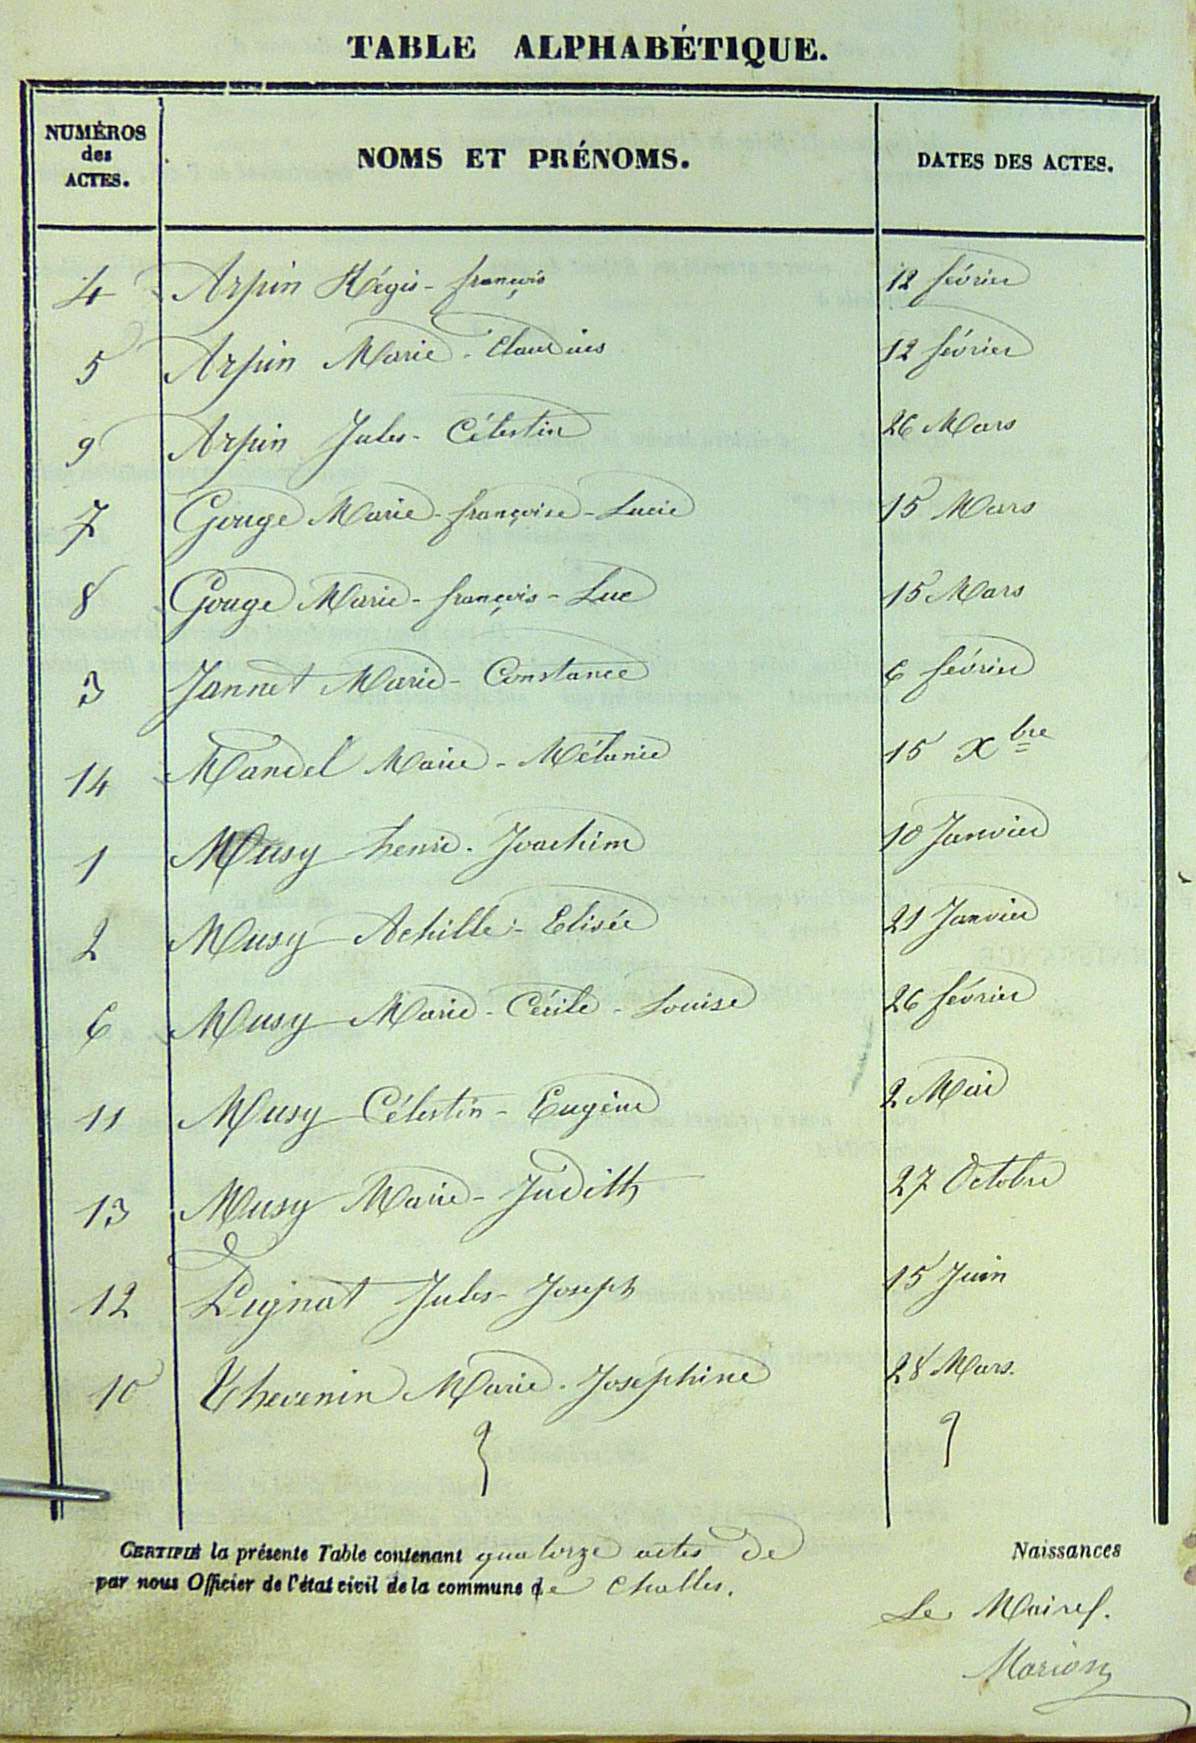 TABLE ALPHABÉTIQUE.
NUMÉROS
des
ACTES.
NOMS ET PRÉNOMS.
DATES DES ACTES.
4 Arpin Régis - françois 12 février
5 Arpin Marie - Claudius 12 février
9 Arpin Jules - Célestin 26 Mars
7 Gouge Marie - françoise - Lucie 15 Mars
8 Gouge Marie - françois - Luc 15 Mars
3 Jannet Marie - Constance 6 février
14 Mandel Marie - Mélanie 15 Xbre
1 Musy henri - Joachim 10 Janvier
2 Musy Achille - Elisée 21 Janvier
6 Musy Marie - Cécile - Louise 26 février
11 Musy Célestin - Eugène 2 Mai
13 Musy Marie - Judith 27 Octobre
12 Pignat Jules - Joseph 15 Juin
10 Thevenin Marie - Josephine 28 Mars.
CERTIFIÉ la présente Table contenant quatorze actes de Naissances
par nous Officier de l'état civil de la commune de Challes.
Le Maire
Marion